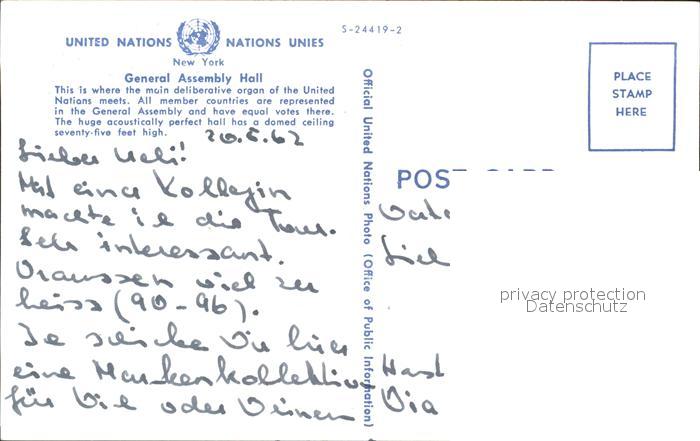 S-24419-2
UNITED NATIONS NATIONS UNIES
New York
General Assembly Hall
This is where the main deliberative organ of the United
Nations meets. All member countries are represented
in the General Assembly and have equal votes there.
The huge acoustically perfect hall has a domed ceiling
seventy-five feet high.
20.8.62
Lieber Ueli!
Mit einer Kollegin
machte ich die Tour.
Sehr interessant.
Draussen viel zu
heiss (90-96).
Ich schicke Dir hier
eine Markenkollektion
für Dich oder Deinen
Official United Nations Photo (Office of Public Information)
PLACE
STAMP
HERE
POST CARD
privacy protection
Datenschutz